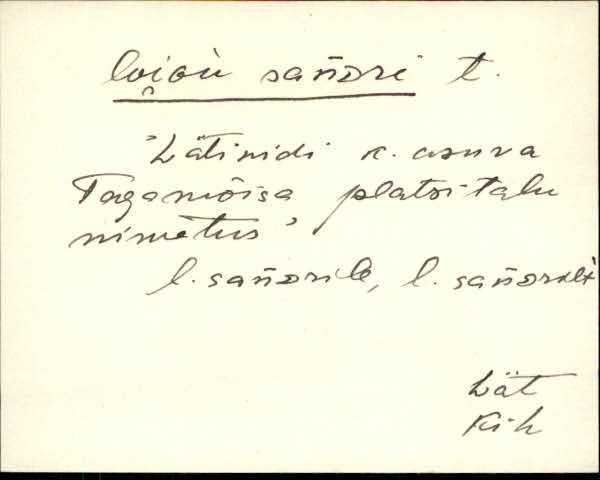 loi̮où sañdri t.
"Lätiniidi k. asuva
Tagamõisa platsi talu
nimetus"
l. sañdrile, l. sañdrilt
Lät
Kih